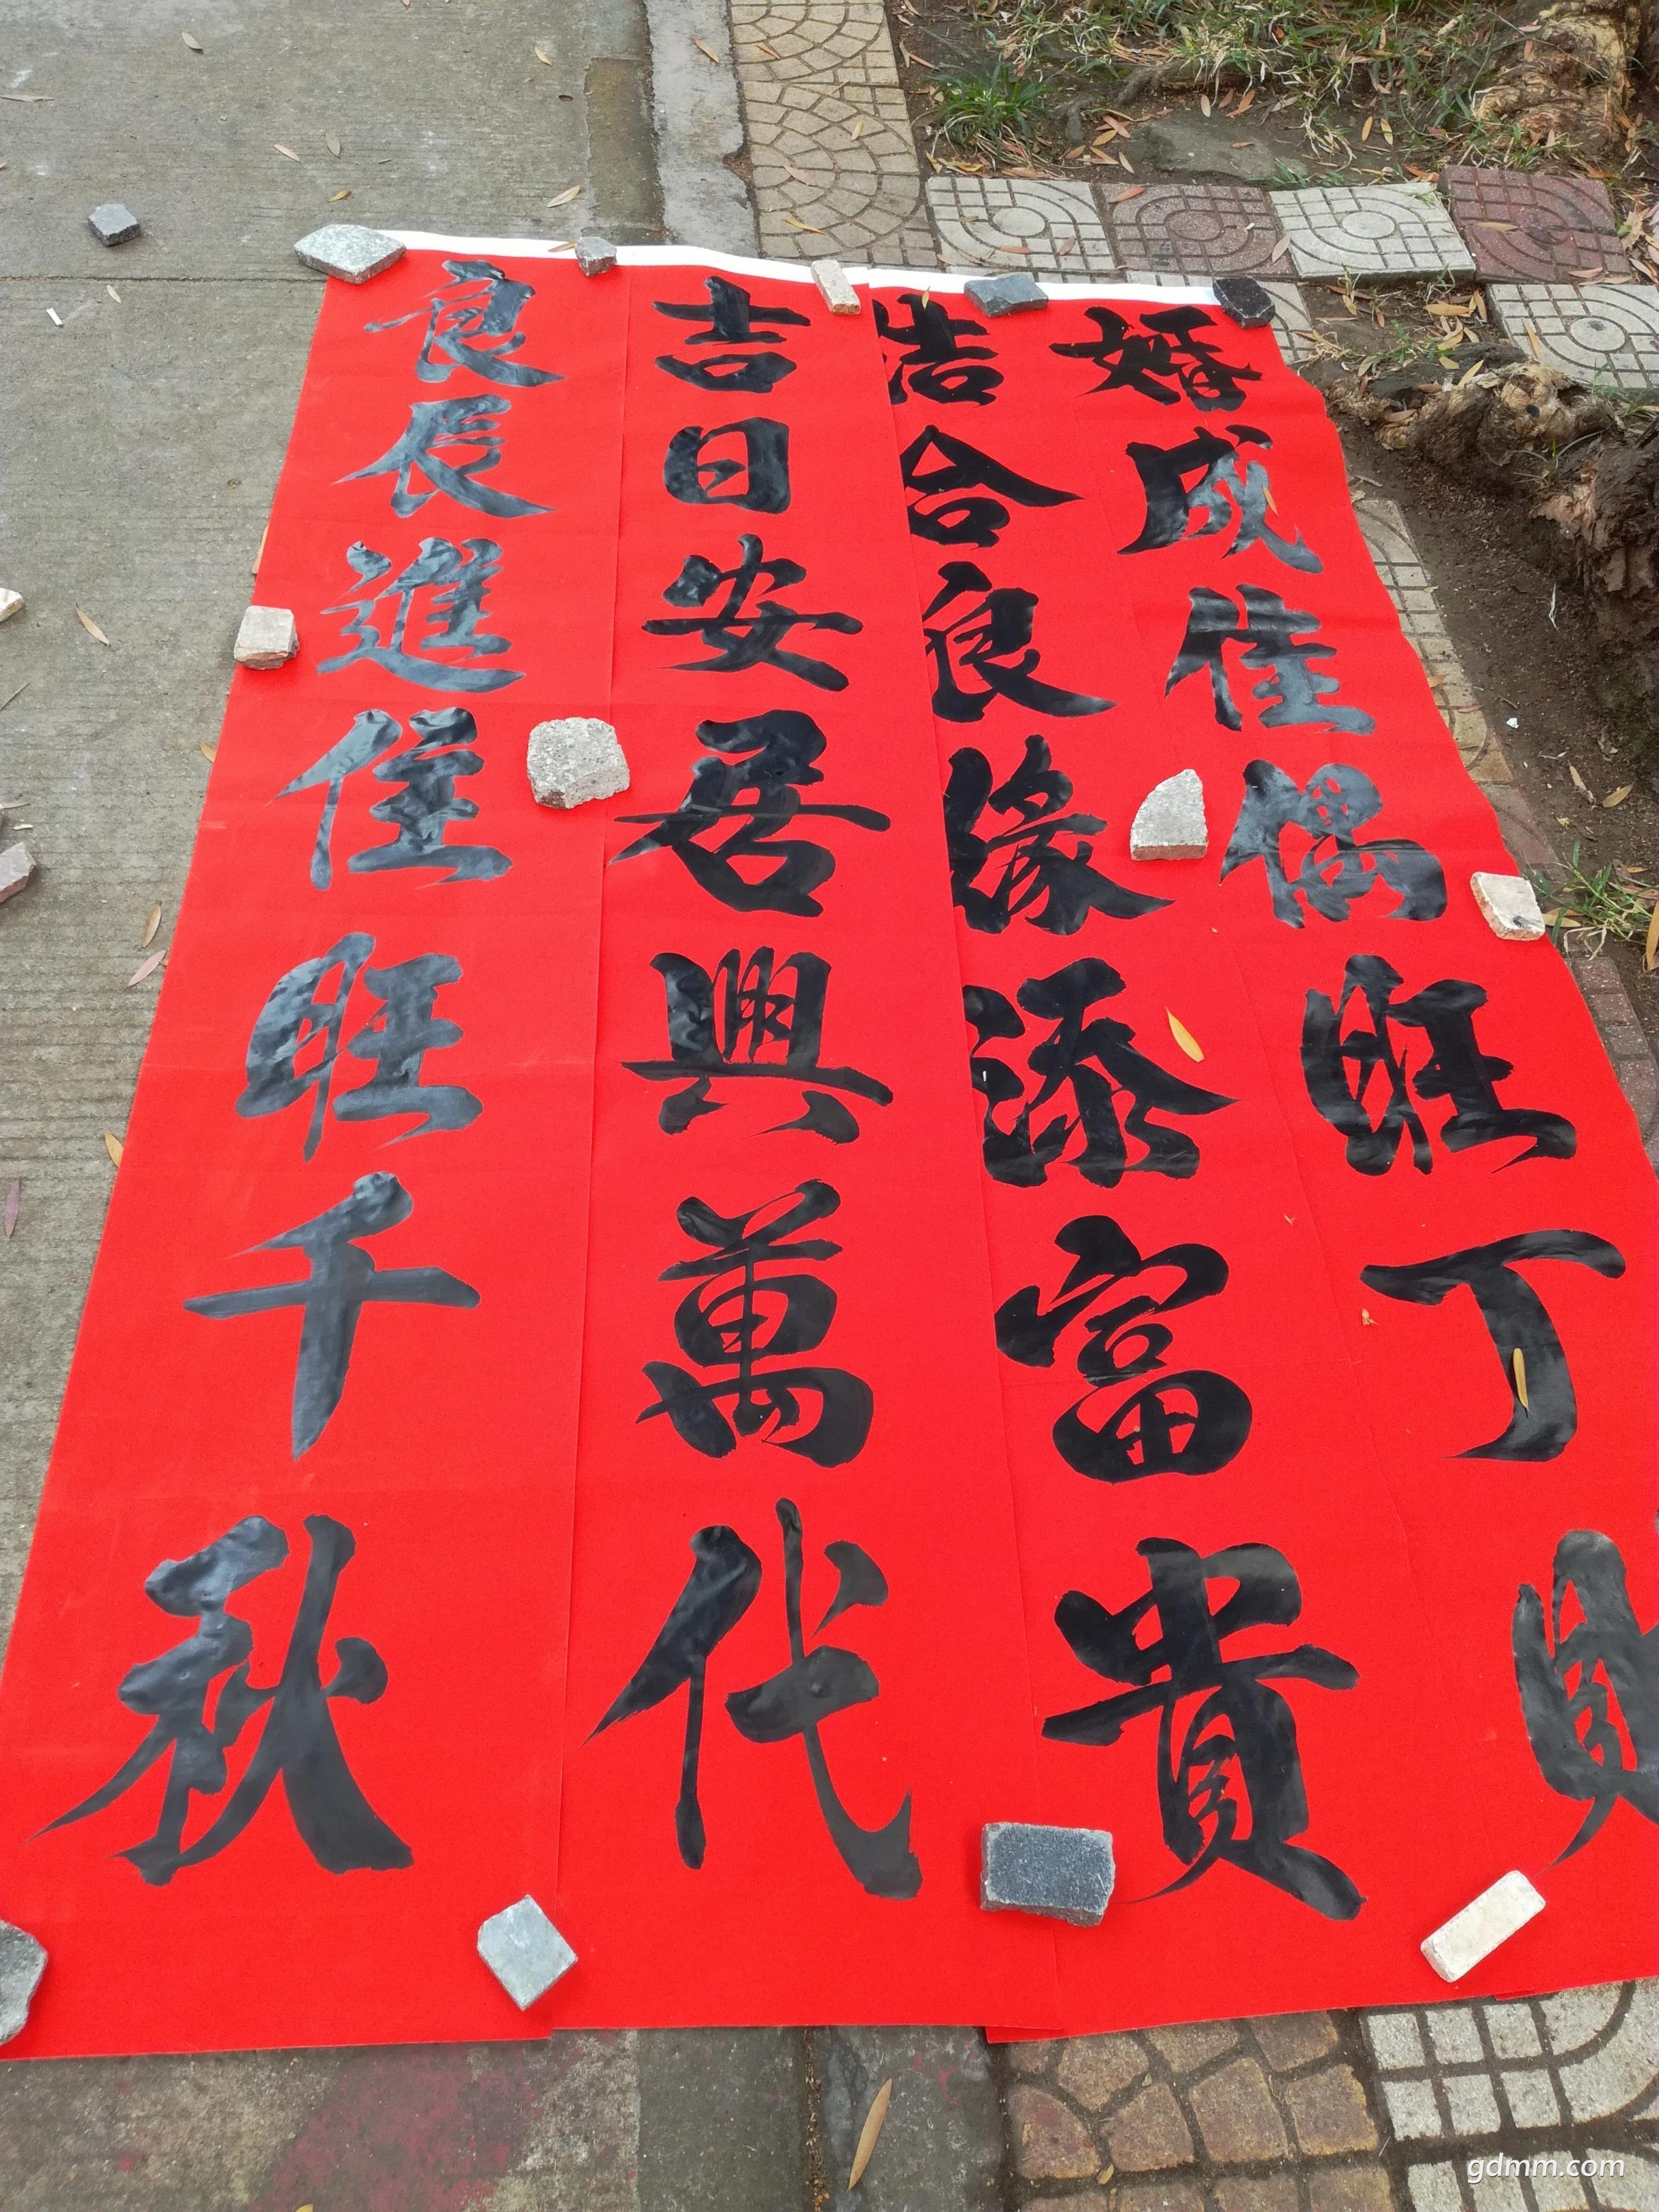 婚成佳偶旺丁財
結合良緣添富貴
吉日安居興萬代
良辰進住旺千秋
gdmm.com